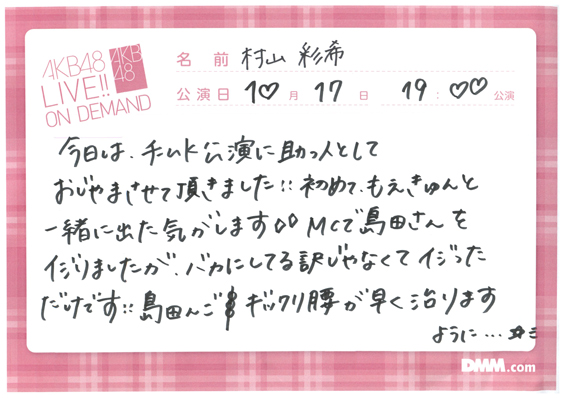 AKB48
LIVE!!
ON DEMAND
AKB
48
名 前 村山 彩希
公演日 1♡月 17日 19:♡♡公演
今日は、チームK公演に助っ人として
おじゃまさせて頂きました!! 初めて、もえきゅんと
一緒に出た気がします♢♢ MCで島田さんを
イジりましたが、バカにしてる訳じゃなくてイジった
だけです!! 島田んご ギックリ腰が早く治ります
ように…☆ミ
DMM.com